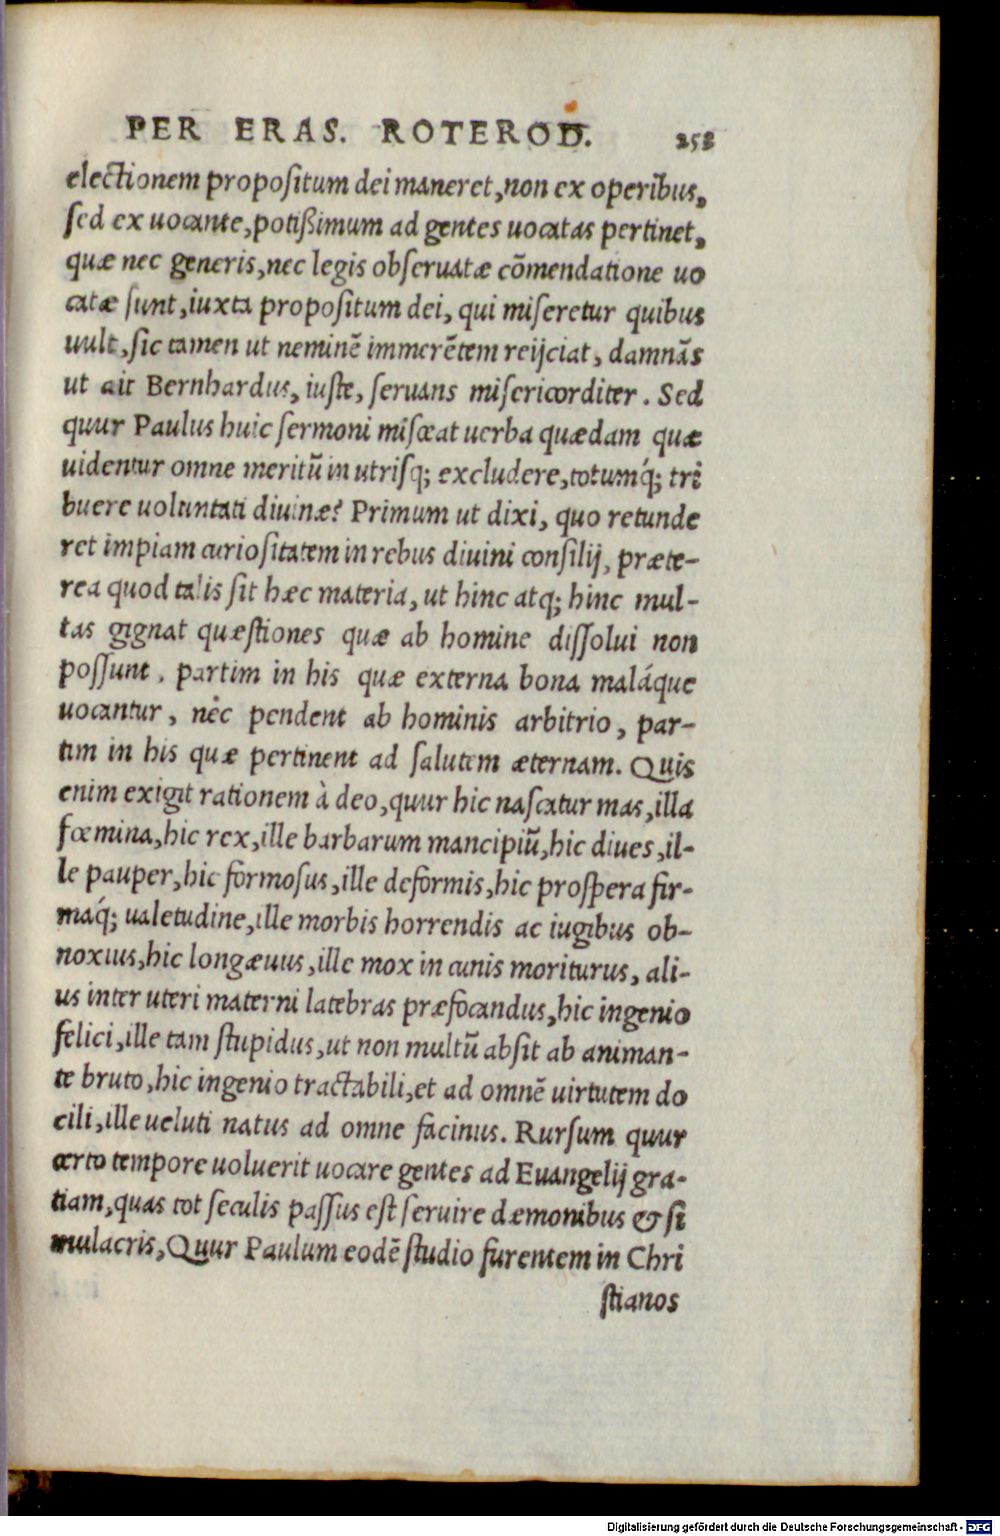 PER ERAS. ROTEROD. 258
electionem propositum dei maneret, non ex operibus,
sed ex uocante, potißimum ad gentes uocatas pertinet,
quæ nec generis, nec legis obseruatæ cōmendatione uo
catæ sunt, iuxta propositum dei, qui miseretur quibus
uult, sic tamen ut neminē immerētem reijciat, damnās
ut ait Bernhardus, iuste, seruans misericorditer. Sed
quur Paulus huic sermoni misceat uerba quædam quæ
uidentur omne meritū in utrisq; excludere, totumq́; tri
buere uoluntati diuinæ? Primum ut dixi, quo retunde
ret impiam curiositatem in rebus diuini consilij, præte-
rea quod talis sit hæc materia, ut hinc atq; hinc mul-
tas gignat quæstiones quæ ab homine dissolui non
possunt, partim in his quæ externa bona maláque
uocantur, nec pendent ab hominis arbitrio, par-
tim in his quæ pertinent ad salutem æternam. Quis
enim exigit rationem à deo, quur hic nascatur mas, illa
fœmina, hic rex, ille barbarum mancipiū, hic diues, il-
le pauper, hic formosus, ille deformis, hic prospera fir-
maq́; ualetudine, ille morbis horrendis ac iugibus ob-
noxius, hic longæuus, ille mox in cunis moriturus, ali-
us inter uteri materni latebras præfocandus, hic ingenio
felici, ille tam stupidus, ut non multū absit ab animan-
te bruto, hic ingenio tractabili, et ad omnē uirtutem do
cili, ille ueluti natus ad omne facinus. Rursum quur
certo tempore uoluerit uocare gentes ad Euangelij gra-
tiam, quas tot seculis passus est seruire dæmonibus & si
mulacris, Quur Paulum eodē studio furentem in Chri
stianos
Digitalisierung gefördert durch die Deutsche Forschungsgemeinschaft - DFG